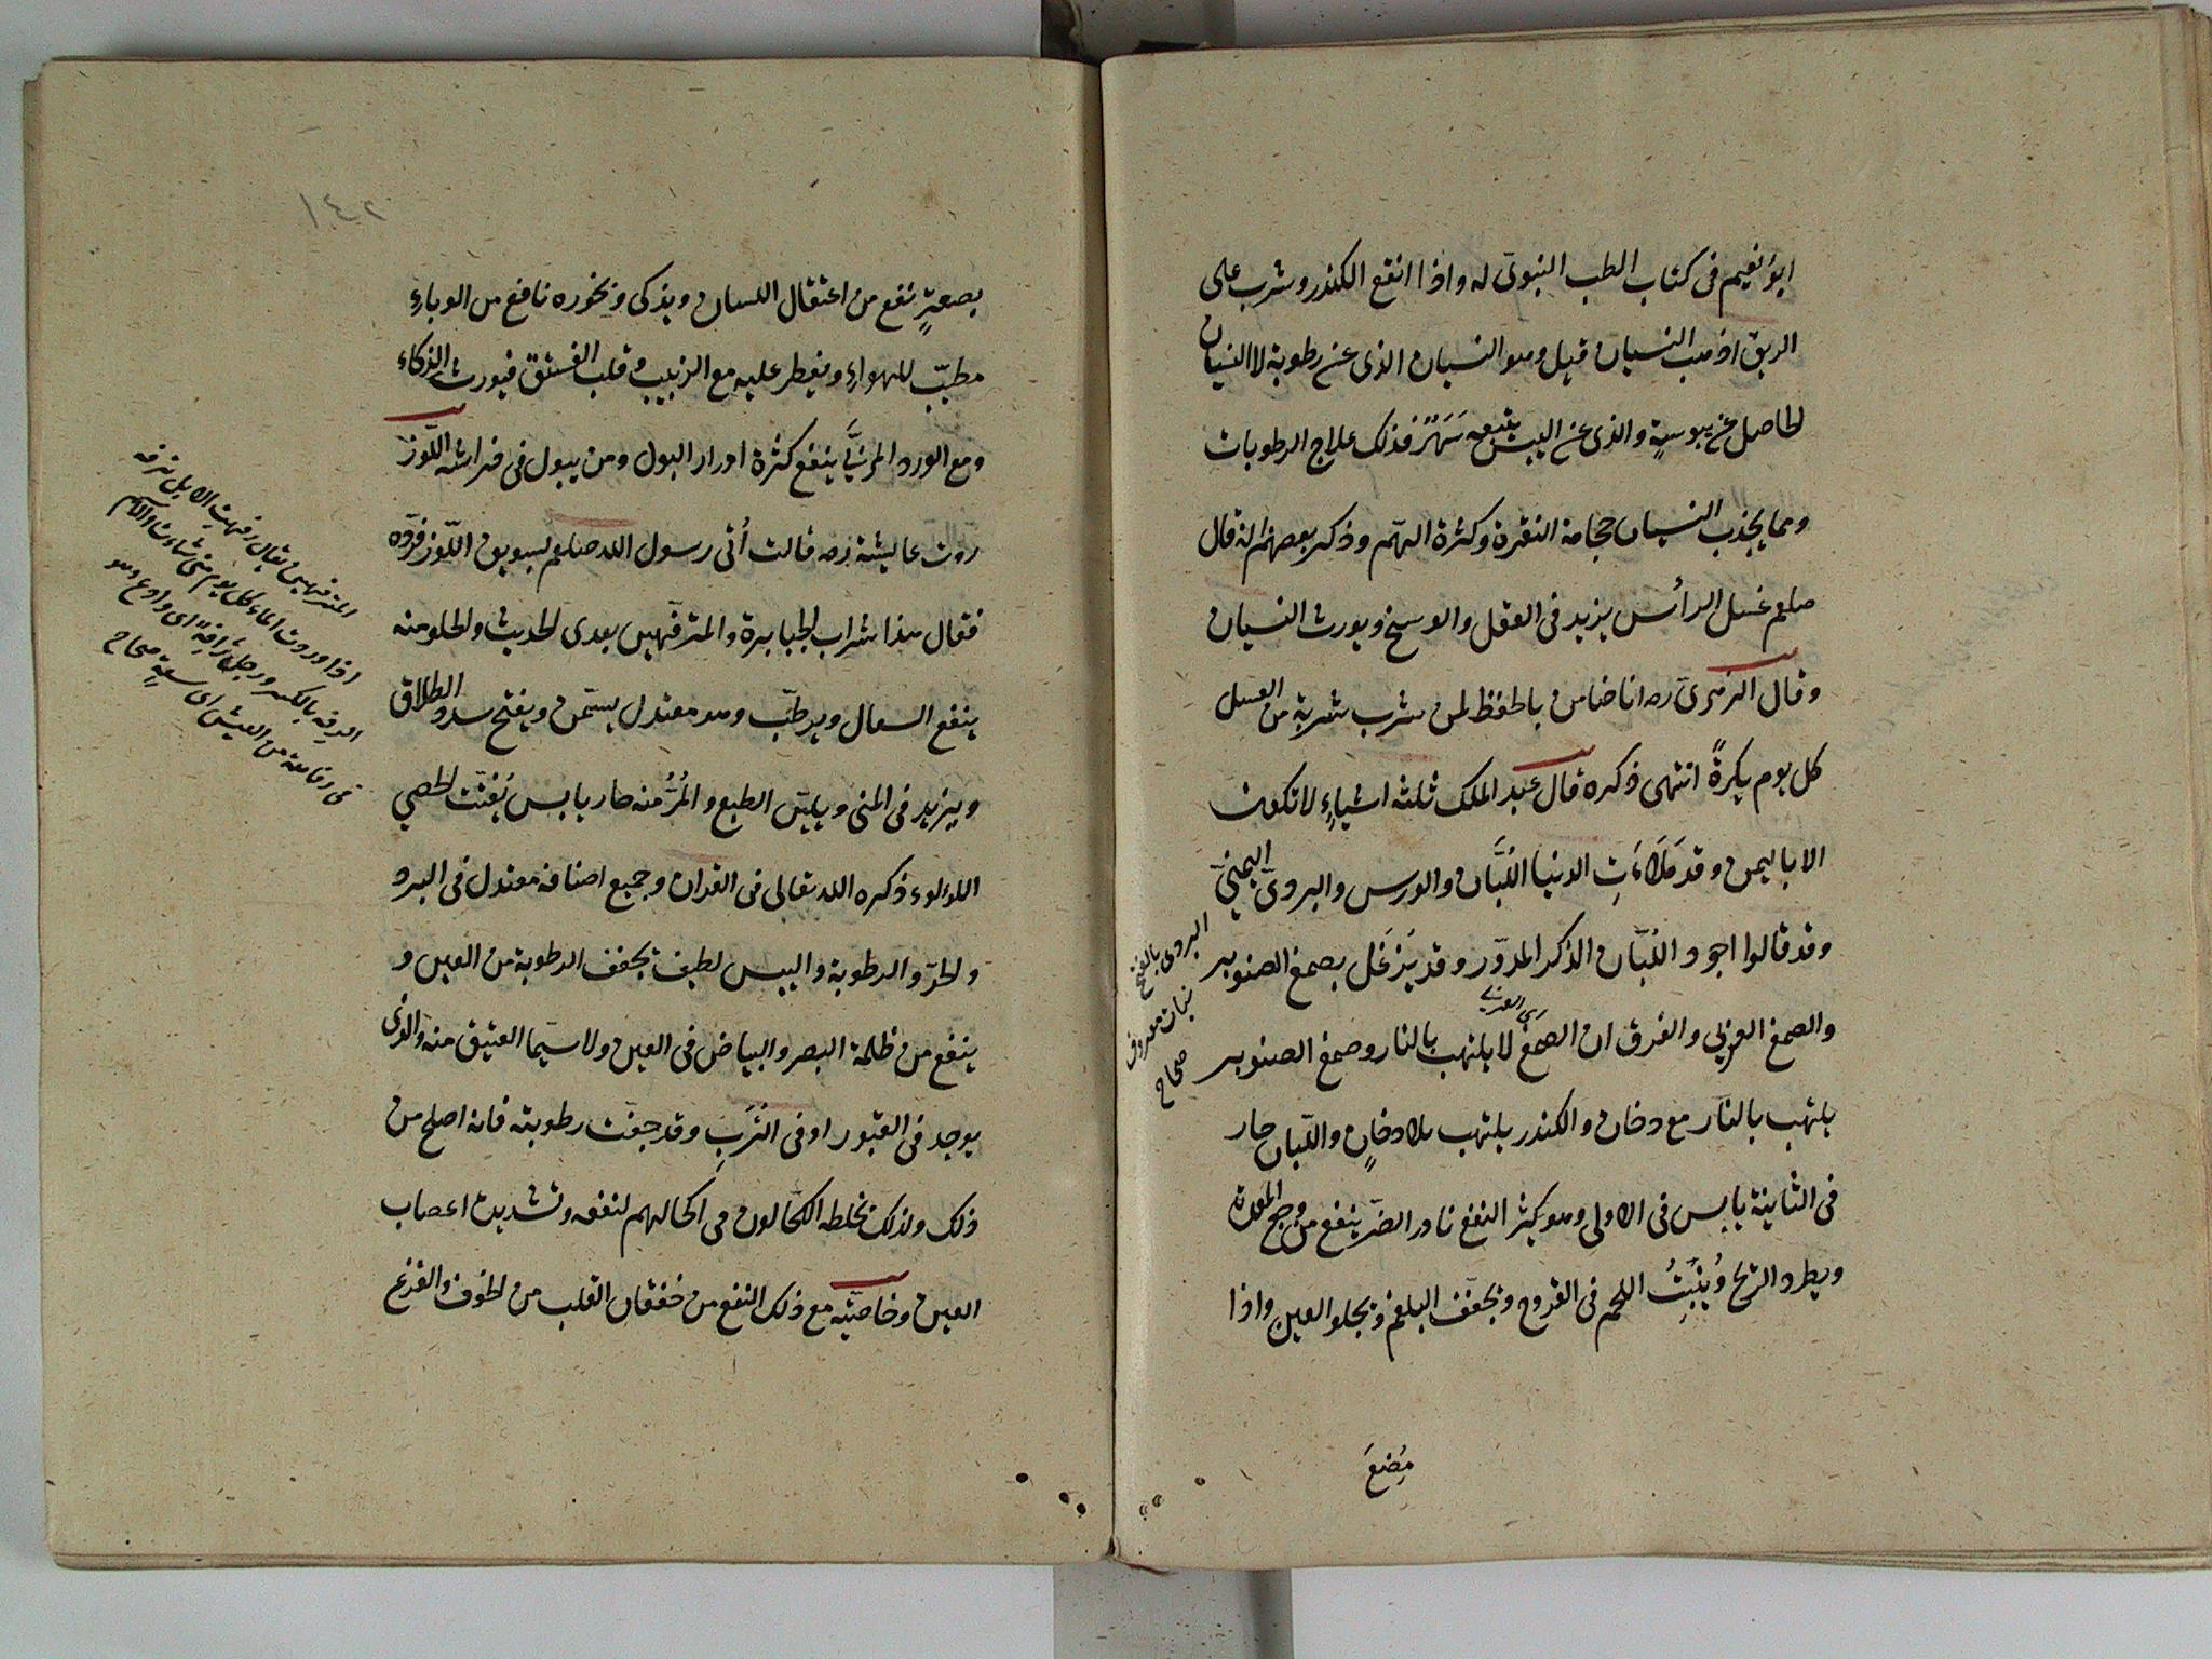 ابو نعيم فى كتاب الطب النبوى له واذا انقع الكندر وشرب على
الريق اذهب النسيان قيل وهو النسيان الذى عن رطوبة لا النسيان
الحاصل عن يبوسةٍ والذى عن اليبس يتبعه سَهَرٌ فذلك علاج الرطوبات
ومما يجذب النسيان حجامة النقرة وكثرة الهمّ وذكر بعضهم انه قال
صلعم غسل الرأس يزيد فى العقل والوسخ ويورث النسيان
وقال الزهرىّ ره انا ضامن بالحفظ لمن شرب شربة من العسل
كل يوم بكرةً انتهى ذكره قال عبد الملك ثلثه اشياءٍ لا تكون
الا باليمن وقد مَلَاءَتِ الدنيا اللُبَّان والورس والبردىّ اليمنىّ
وقد قالوا اجود اللُبّان الذكر المدوّر وقد يَزْغَل بصمغ الصنوبر
والصمغ العربى والفرق ان الصمغ لا يلتهب بالنار وصمغ الصنوبر
يلتهب بالنار مع دخان والكندر يلتهب بلا دخانٍ واللّبان حار
فى الثانية يابس فى الاولى وهو كثير النفع نادر الضرّ ينفع من وجع المعدة
ويطرد الريح ويُنْبِتُ اللحم فى القروح ويجفّف البلغم ويجلو العين واذا
مُضِغَ
البردى بالفتح
نبات معروف
صحاح
١٤٢
بصعترٍ نفع من اعتقال اللسان ويذكى وبخوره نافع من الوباء
مطيّب للهواء ويفطر عليه مع الزبيب وقلب الفستق فيورث الذكاء
ومع الورد المربّىَ ينفع كثرة ادرار البول ومن يبول فى فراشه اللّوز
روت عايشة رضه قالت أُتى رسول الله صلعم بسويق اللّوز فردّه
فقال هذا شراب الجبابرة والمترفّهين بعدى الحديث والحلو منه
ينفع السعال ويرطّب وهو معتدل يسمّن ويفتح سدد الطلاق
ويزيد فى المنى ويليّن الطبع والمُرُّ منه حار يابس يُفَتّت الحصى
اللولوء ذكره الله تعالى فى القران وجميع اصنافه معتدل فى البرد
والحرّ والرطوبة واليبس لطيف يجفف الرطوبة من العين و
ينفع من ظلمة البصر والبياض فى العين ولا سيما العتيق منه والذى
يوجد فى القبور او فى التُرَبِ وقد جفّت رطوبته فانه اصلح من
ذلك ولذلك يخلطه الكحّالون فى اكحالهم لنفعه وتشديده اعصاب
العين وخاصيّته مع ذلك النفع من خفقان القلب من الخوف والفزع
المترفهين يقال رفهت الابل ترفه
اذا وردت الماء كل يوم متى شاءت والاسم
الرفه بالكسر ورجل رافهٌ اى وادع وهو
فى رفاهة من العيش اى سعةٍ صحاح